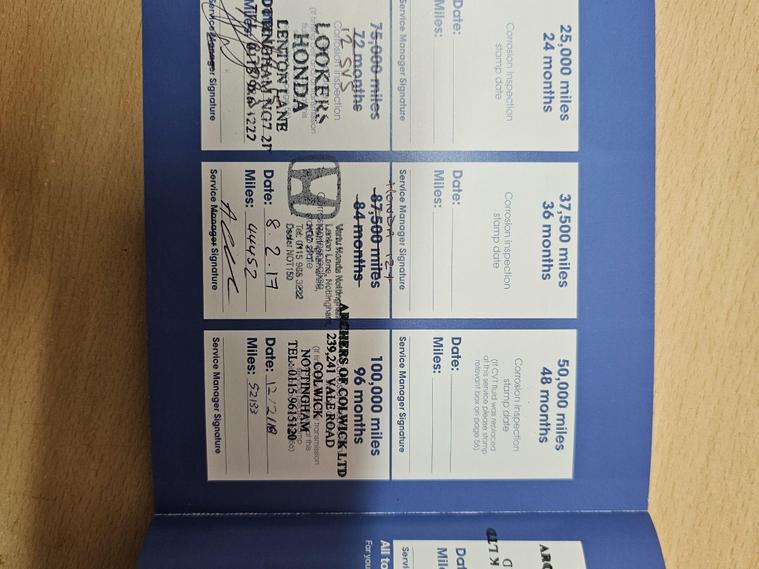 25,000 miles
24 months
Corrosion inspection
stamp date
Date:
Miles:
Service Manager Signature
37,500 miles
36 months
Corrosion inspection
stamp date
Date:
Miles:
Service Manager Signature
50,000 miles
48 months
Corrosion inspection
stamp date
(If CVT fluid was replaced
at this service please stamp
relevant box on page 66)
Date:
Miles:
Service Manager Signature
75,000 miles
72 months
Corrosion inspection
LOOKERS
HONDA
LENTON LANE
NG7 2
Miles:
Service Manager Signature
HONDA
87,500 miles
84 months
Vertu Honda Nottingham
Lenton Lane, Nottingham,
Tel: 0115 988 3222
Dealer NOT150
Date: 8.2.17
Miles: 44452
Service Manager Signature
100,000 miles
96 months
ARCHERS OF COLWICK LTD
239,241 VALE ROAD
COLWICK
NOTTINGHAM
TEL: 0115 9615120
Date: 12/2/18
Miles: 52133
Service Manager Signature
All to
For you
Date
Servi